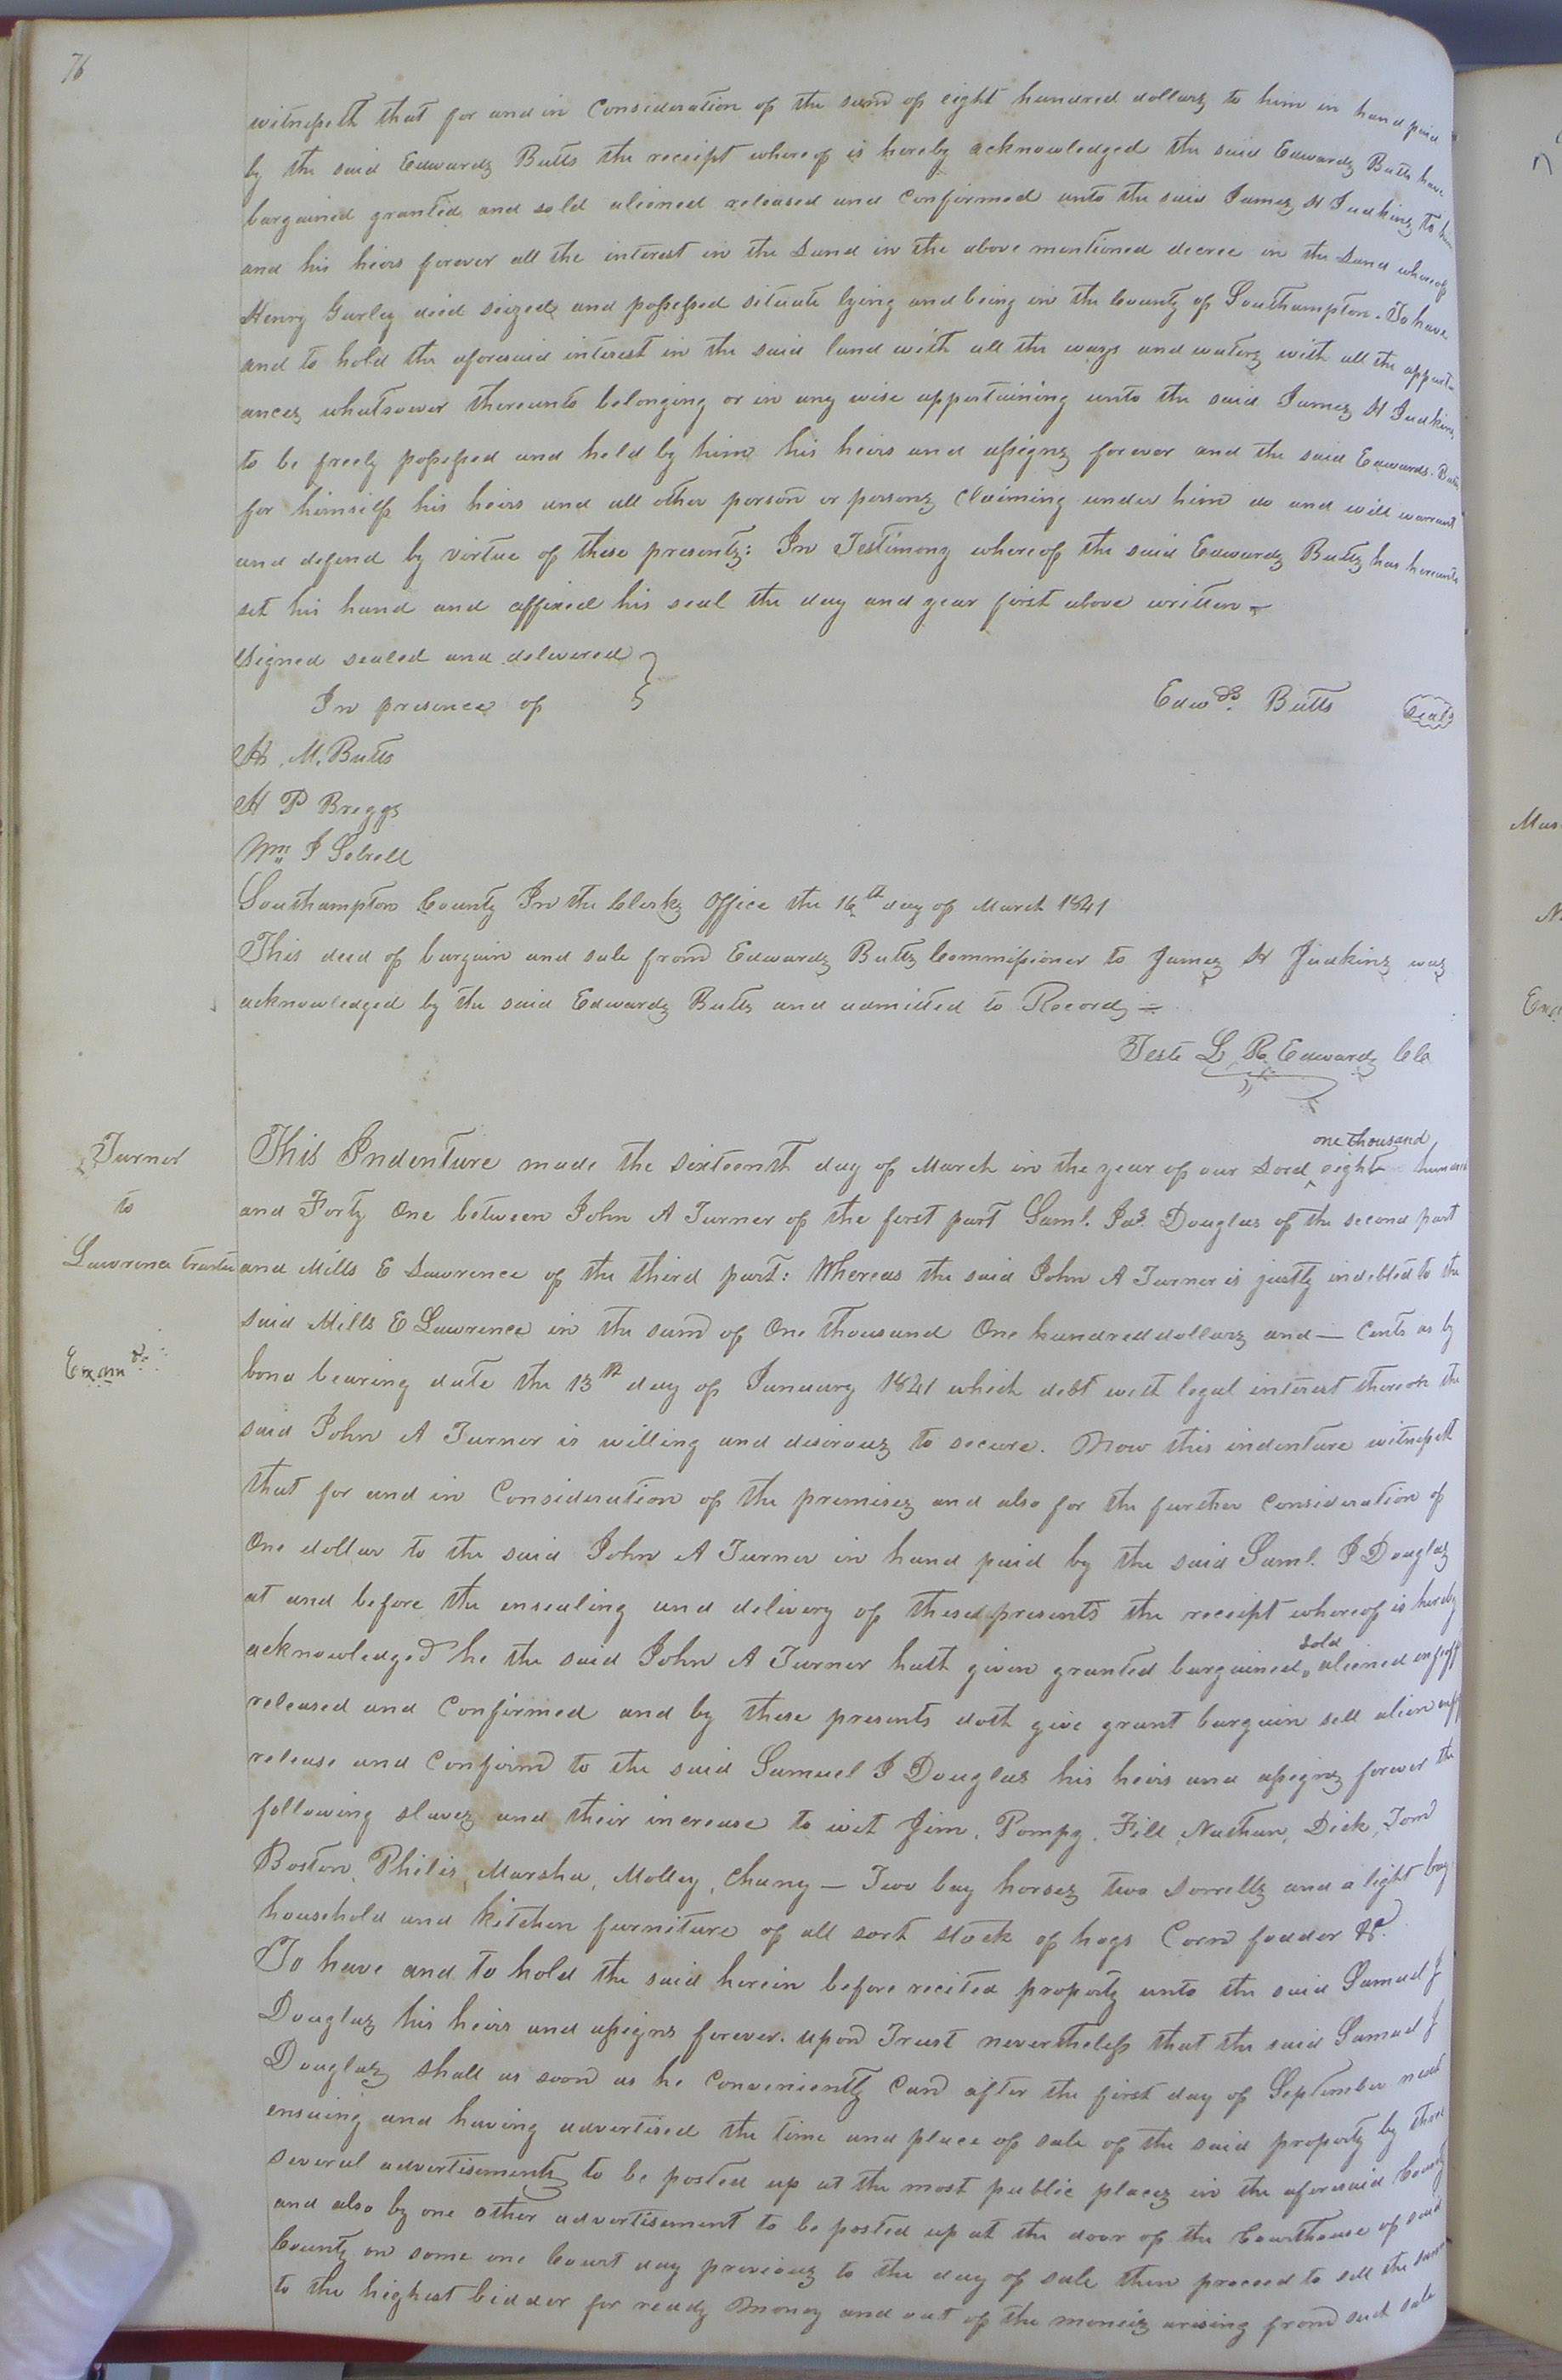 76
witnesseth that for and in Consideration of the sum of eight hundred dollars to him in hand paid
by the said Edwards Butts the receipt whereof is hereby acknowledged the said Edwards Butts have
bargained granted and sold aliened released and Confirmed unto the said James H Judkins to him
and his heirs forever all the interest in the Land in the above mentioned decree in the Land whereof
Henry Gurley died seized and possessed situate lying and being in the County of Southampton. To have
and to hold the aforesaid interest in the said land with all the ways and waters with all the appurten
ances whatsoever thereunto belonging or in any wise appertaining unto the said James H Judkins
to be freely possessed and held by him his heirs and assigns forever and the said Edwards Butts
for himself his heirs and all other person or persons Claiming under him do and will warrant
and defend by virtue of these presents: In Testimony whereof the said Edwards Butts has hereunto
set his hand and affixed his seal the day and year first above written
Signed sealed and delivered
In presence of
Edwds. Butts seal
M. Butts
H P Briggs
Wm J Sebrell
Southampton County In the Clerks Office the 16th day of March 1841
This deed of bargain and sale from Edwards Butts Commissioner to James H Judkins was
acknowledged by the said Edwards Butts and admitted to Record
Teste L R Edwards CC
Turner
to
Lawrence trustee
Exmd
This Indenture made the sixteenth day of March in the year of our Lord one thousand eight hundred
and Forty One between John A Turner of the first part Saml. Jas. Douglas of the second part
and Mills E Lawrence of the third part: Whereas the said John A Turner is justly indebted to the
said Mills E Lawrence in the sum of One thousand One hundred dollars and — Cents as by
bond bearing date the 13th day of January 1841 which debt with legal interest thereon the
said John A Turner is willing and desirous to secure. Now this indenture witnesseth
that for and in Consideration of the premises and also for the further Consideration of
One dollar to the said John A Turner in hand paid by the said Saml. J Douglas
at and before the ensealing and delivery of these presents the receipt whereof is hereby
acknowledged he the said John A Turner hath given granted bargained sold aliened enfeoff
released and Confirmed and by these presents doth give grant bargain sell alien enff
release and Confirm to the said Samuel J Douglas his heirs and assigns forever the
following slaves and their increase to wit Jim, Pompy, Fill, Nathan, Dick, Tom
Boston, Philis, Marsha, Molley, Chany — Two bay horses two Sorrells and a light bay
household and kitchen furniture of all sort stock of hogs Corn fodder &c.
To have and to hold the said herein before recited property unto the said Samuel J
Douglas his heirs and assigns forever. upon Trust nevertheless that the said Samuel J
Douglas shall as soon as he Conveniently Can after the first day of September next
ensuing and having advertised the time and place of sale of the said property by three
several advertisements to be posted up at the most public places in the aforesaid County
and also by one other advertisement to be posted up at the door of the Courthouse of said
County on some one Court day previous to the day of sale then proceed to sell the same
to the highest bidder for ready money and out of the monies arising from such sale